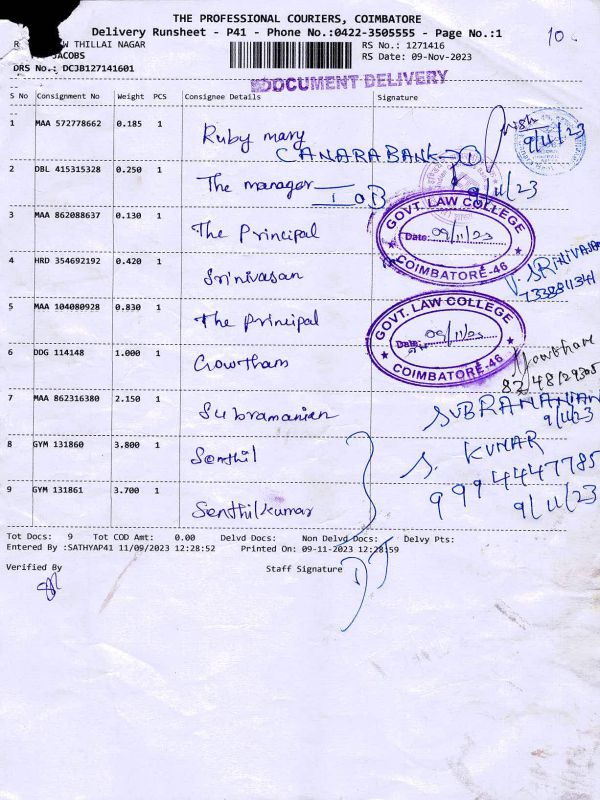 THE PROFESSIONAL COURIERS, COIMBATORE
Delivery Runsheet - P41 - Phone No.:0422-3505555 - Page No.:1
10
R W THILLAI NAGAR
RS No.: 1271416
JACOBS
RS Date: 09-Nov-2023
DRS No.: DCJB127141601
DOCUMENT DELIVERY
S No Consignment No Weight PCS Consignee Details Signature
1 MAA 572778662 0.185 1 Ruby mary
CANARA BANK
9/11/23
2 DBL 415315328 0.250 1 The manager IOB 9/11/23
3 MAA 862088637 0.130 1 The Principal
GOVT. LAW COLLEGE
Date: 09/11/23
COIMBATORE-46
4 HRD 354692192 0.420 1 Srinivasan
V. SRINIVASAN
5 MAA 104080928 0.830 1 The principal
GOVT. LAW COLLEGE
Date: 09/11/23
COIMBATORE-46
6 DDG 114148 1.000 1 Gowtham
8248129305
7 MAA 862316380 2.150 1 Subramanian
SUBRAMANIAN
9/11/23
8 GYM 131860 3.800 1 Senthil
S. KUMAR
9994447785
9 GYM 131861 3.700 1 Senthilkumar
9/11/23
Tot Docs: 9 Tot COD Amt: 0.00 Delvd Docs: Non Delvd Docs: Delvy Pts:
Entered By :SATHYAP41 11/09/2023 12:28:52 Printed On: 09-11-2023 12:28:59
Verified By Staff Signature